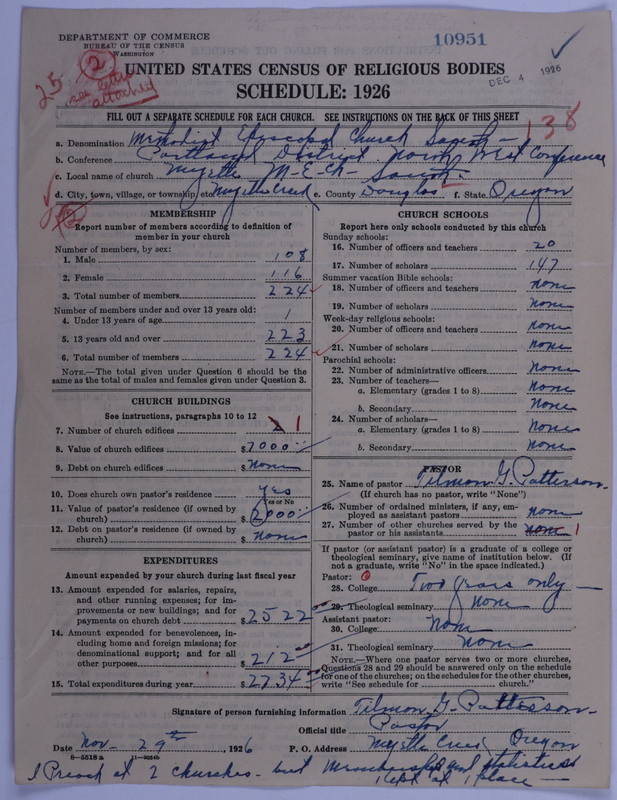 DEPARTMENT OF COMMERCE
BUREAU OF THE CENSUS
WASHINGTON
10951
DEC 4 1926
25 2
see letter
attached
UNITED STATES CENSUS OF RELIGIOUS BODIES
SCHEDULE: 1926
FILL OUT A SEPARATE SCHEDULE FOR EACH CHURCH. SEE INSTRUCTIONS ON THE BACK OF THIS SHEET
138
a. Denomination Methodist Episcopal Church
b. Conference Portland District North West Conference
c. Local name of church Myrtle M-E-Ch-
d. City, town, village, or township etc. Myrtle Creek e. County Douglas f. State Oregon
2
MEMBERSHIP
Report number of members according to definition of
member in your church
Number of members, by sex:
1. Male 108
2. Female 116
3. Total number of members 224
Number of members under and over 13 years old:
4. Under 13 years of age 1
5. 13 years old and over 223
6. Total number of members 224
NOTE.—The total given under Question 6 should be
same as the total of males and females given under Question 3.
CHURCH BUILDINGS
See instructions, paragraphs 10 to 12
7. Number of church edifices 2 1
8. Value of church edifices $7000
9. Debt on church edifices $None
10. Does church own pastor's residence yes
Yes or No
11. Value of pastor's residence (if owned by
church) $2000
12. Debt on pastor's residence (if owned by
church) $None
EXPENDITURES
Amount expended by your church during last fiscal year
13. Amount expended for salaries, repairs,
and other running expenses; for im-
provements or new buildings; and for
payments on church debt $2522
14. Amount expended for benevolences, in-
cluding home and foreign missions; for
denominational support; and for all
other purposes $212
15. Total expenditures during year $2734
CHURCH SCHOOLS
Report here only schools conducted by this church
Sunday schools:
16. Number of officers and teachers 20
17. Number of scholars 147
Summer vacation Bible schools:
18. Number of officers and teachers none
19. Number of scholars none
Week-day religious schools:
20. Number of officers and teachers none
21. Number of scholars none
Parochial schools:
22. Number of administrative officers none
23. Number of teachers—
a. Elementary (grades 1 to 8) none
b. Secondary None
24. Number of scholars—
a. Elementary (grades 1 to 8) none
b. Secondary none
PASTOR
25. Name of pastor Tilmon G. Patterson
(If church has no pastor, write "None")
26. Number of ordained ministers, if any, em-
ployed as assistant pastors none
27. Number of other churches served by the
pastor or his assistants none 1
If pastor (or assistant pastor) is a graduate of a college or
theological seminary, give name of institution below. (If
not a graduate, write "No" in the space indicated.)
Pastor: 0
28. College Two years only
29. Theological seminary none
Assistant pastor:
30. College None
31. Theological seminary none
NOTE.—Where one pastor serves two or more churches,
Questions 28 and 29 should be answered only on the schedule
for one of the churches; on the schedules for the other churches,
write "See schedule for church."
Signature of person furnishing information Tilmon G. Patterson
Official title Pastor
Date Nov- 29th, 1926 P. O. Address Myrtle Creek Oregon
8—5518a 11—9024b
I Preach at 2 churches- but Membership and statistics
kept at 1 place —